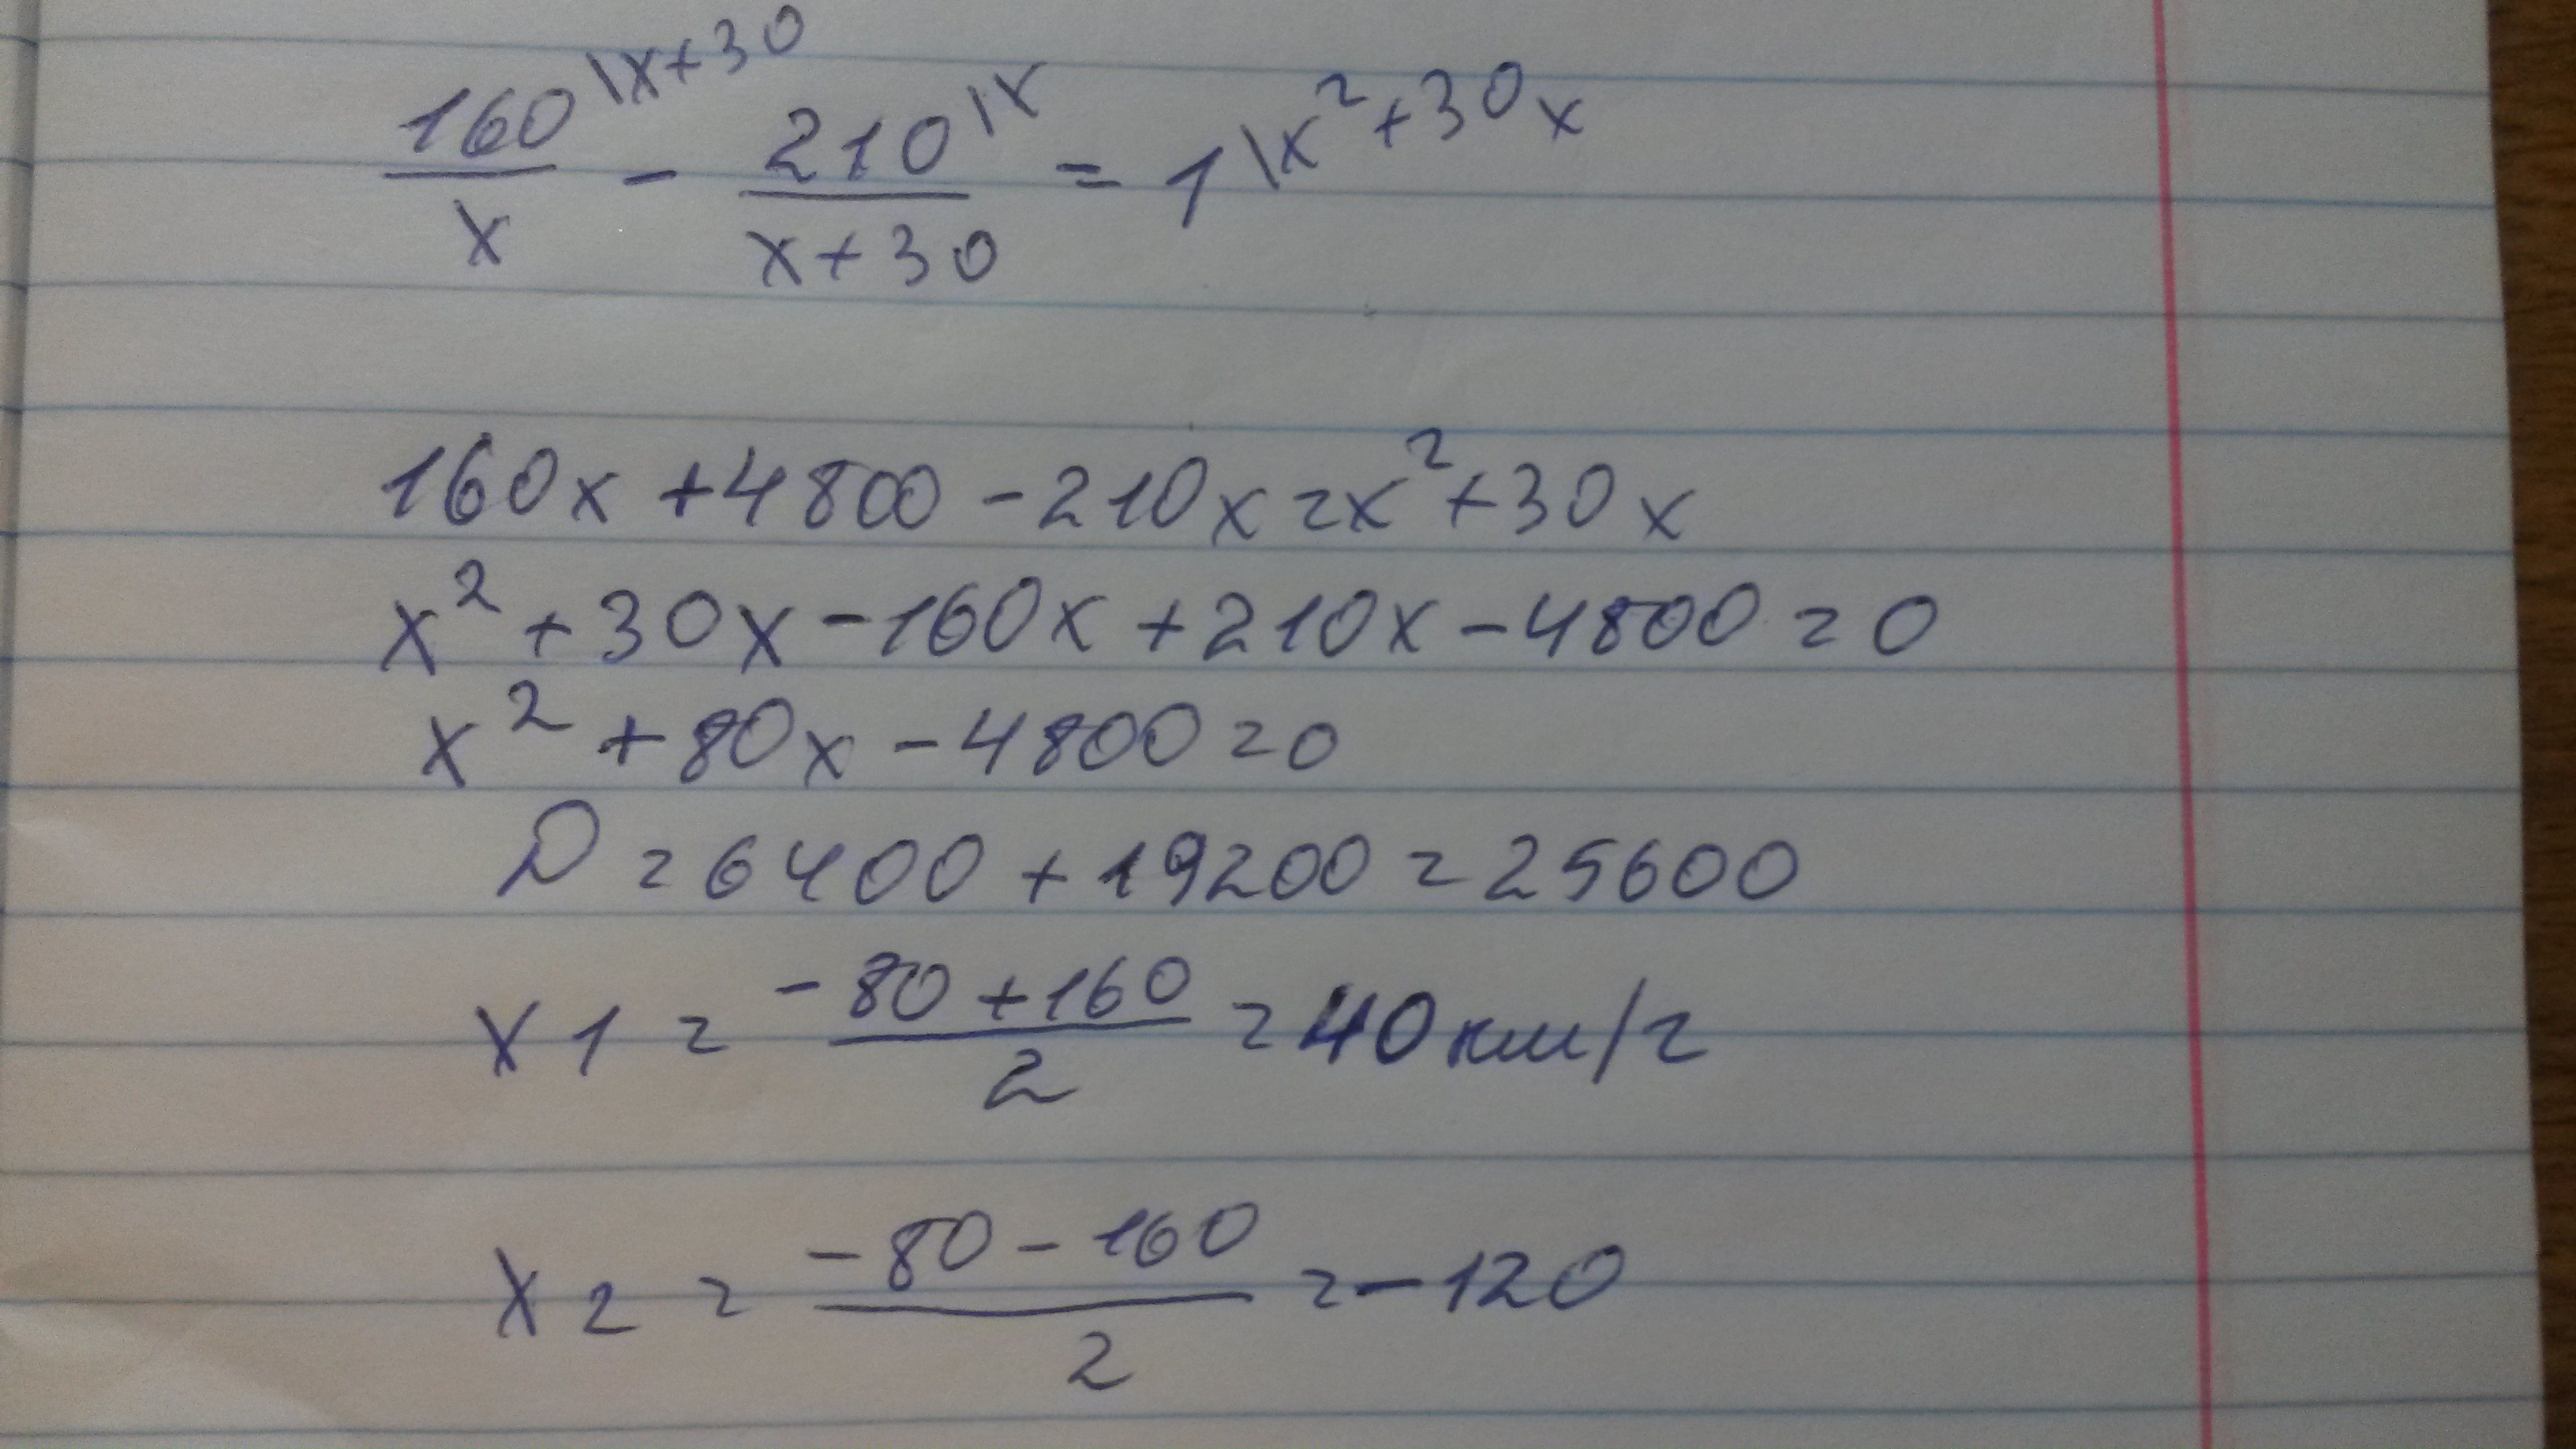 160\x+30 / x - 210\x / x+30 = 1\x²+30x
160x+4800-210x=x²+30x
x²+30x-160x+210x-4800=0
x²+80x-4800=0
D=6400+19200=25600
x1= -80+160 / 2 =40км/г
x2= -80-160 / 2 =-120